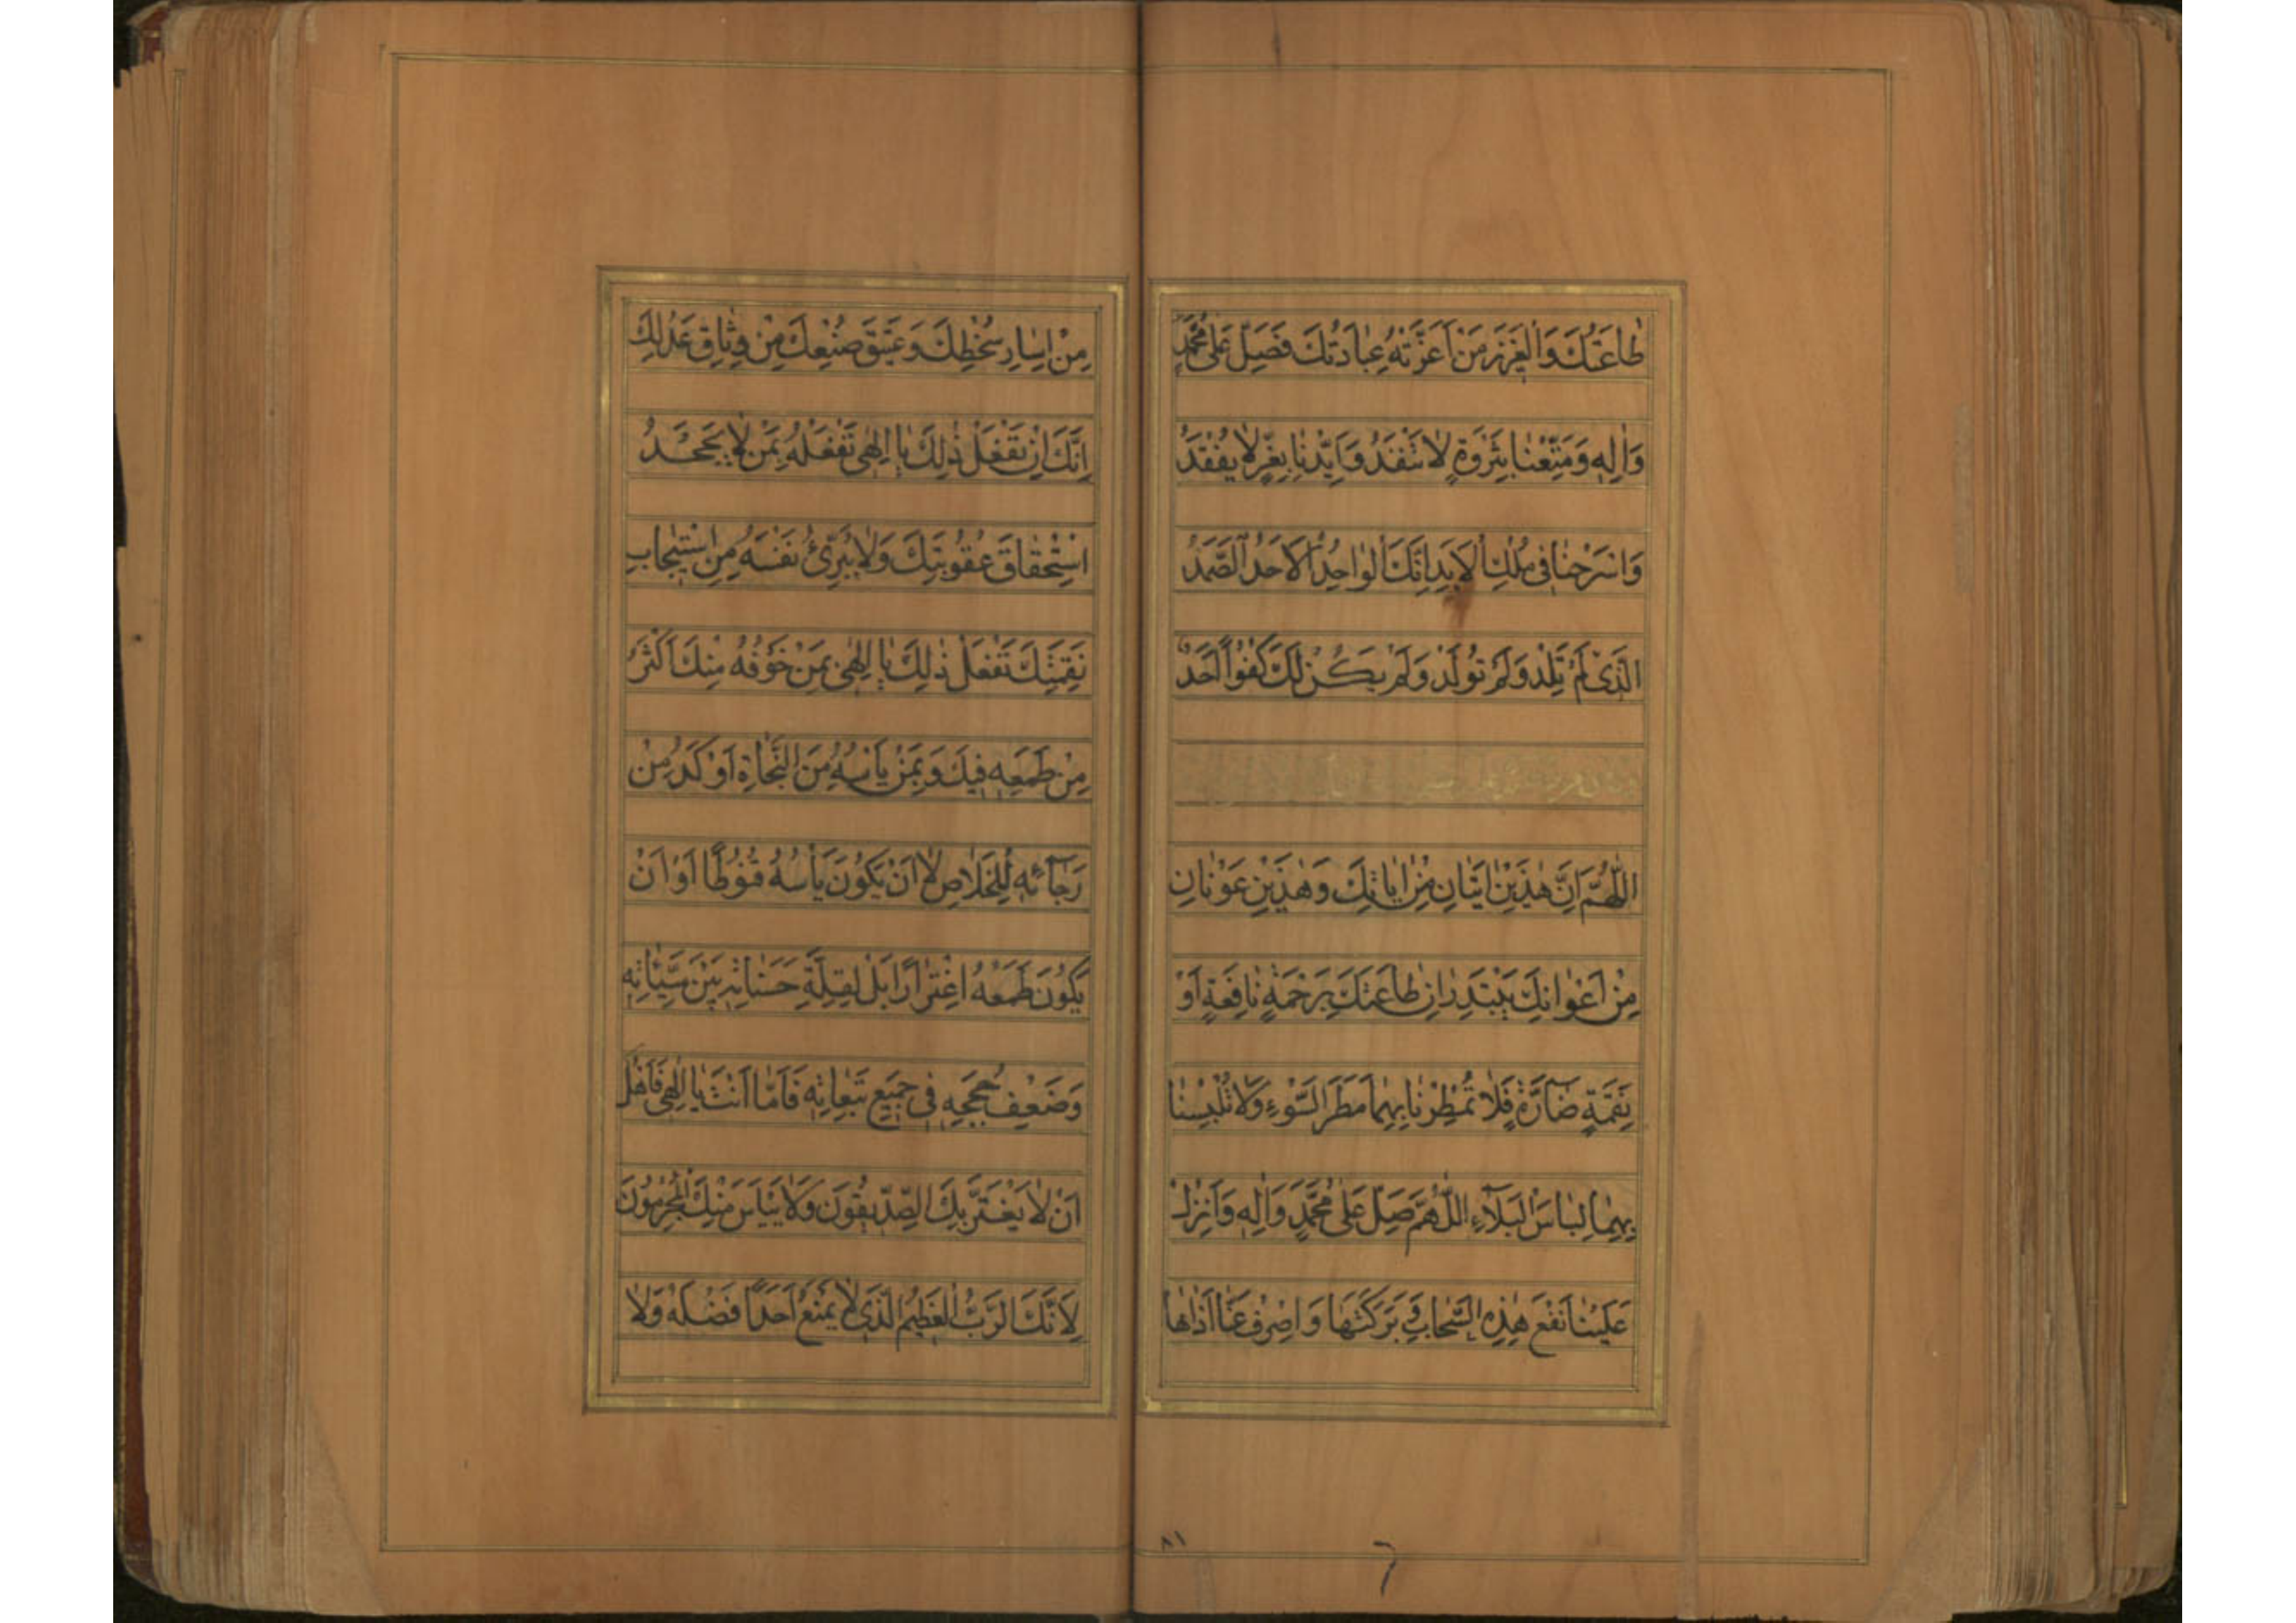 طَاعَتُكَ وَالْعَزِيزَ مَنْ اَعَزَّتْهُ عِبَادَتُكَ فَصَلِّ عَلٰى مُحَمَّدٍ
وَاٰلِهٖ وَمَتِّعْنَا بِثَرْوَةٍ لَا تَنْفَدُ وَاَيِّدْنَا بِعِزٍّ لَا يُفْقَدُ
وَاسْرَحْنَا فِى مُلْكِ الْاَبَدِ اِنَّكَ الْوَاحِدُ الْاَحَدُ الصَّمَدُ
الَّذِى لَمْ تَلِدْ وَلَمْ تُولَدْ وَلَمْ يَكُنْ لَكَ كُفُوًا اَحَدٌ
اللّٰهُمَّ اِنَّ هٰذَيْنِ اٰيَتَانِ مِنْ اٰيَاتِكَ وَهٰذَيْنِ عَوْنَانِ
مِنْ اَعْوَانِكَ يَبْتَدِرَانِ طَاعَتَكَ بِرَحْمَةٍ نَافِعَةٍ اَوْ
نَقِمَةٍ ضَآرَّةٍ فَلَا تُمْطِرْنَا بِهِمَا مَطَرَ السَّوْءِ وَلَا تُلْبِسْنَا
بِهِمَا لِبَاسَ الْبَلَآءِ اللّٰهُمَّ صَلِّ عَلٰى مُحَمَّدٍ وَاٰلِهٖ وَاَنْزِلْ
عَلَيْنَا نَفْعَ هٰذِهِ السَّحَابِ وَبَرَكَتَهَا وَاصْرِفْ عَنَّا اَذَاهَا
٨١
مِنْ اِسَارِ سُخْطِكَ وَعَتِيقَ صُنْعِكَ مِنْ وِثَاقِ عَدْلِكَ
اِنَّكَ اِنْ تَفْعَلْ ذٰلِكَ يَا اِلٰهِى تَفْعَلْهُ بِمَنْ لَا يَجْحَدُ
اسْتِحْقَاقَ عُقُوبَتِكَ وَلَا يُبَرِّئُ نَفْسَهُ مِنِ اسْتِيجَابِ
نَقِمَتِكَ تَفْعَلْ ذٰلِكَ يَا اِلٰهِى بِمَنْ خَوْفُهُ مِنْكَ اَكْثَرُ
مِنْ طَمَعِهٖ فِيكَ وَبِمَنْ يَأْسُهُ مِنَ النَّجَاةِ اَوْكَدُ مِنْ
رَجَآئِهٖ لِلْخَلَاصِ لَا اَنْ يَكُونَ يَأْسُهُ قُنُوطًا اَوْ اَنْ
يَكُونَ طَمَعُهُ اغْتِرَارًا بَلْ لِقِلَّةِ حَسَنَاتِهٖ بَيْنَ سَيِّئَاتِهٖ
وَضَعْفِ حُجَجِهٖ فِى جَمِيعِ تَبِعَاتِهٖ فَاَمَّا اَنْتَ يَا اِلٰهِى فَاَهْلٌ
اَنْ لَا يَغْتَرَّ بِكَ الصِّدِّيقُونَ وَلَا يَيْاَسَ مِنْكَ الْمُجْرِمُونَ
لِاَنَّكَ الرَّبُّ الْعَظِيمُ الَّذِى لَا يَمْنَعُ اَحَدًا فَضْلَهُ وَلَا